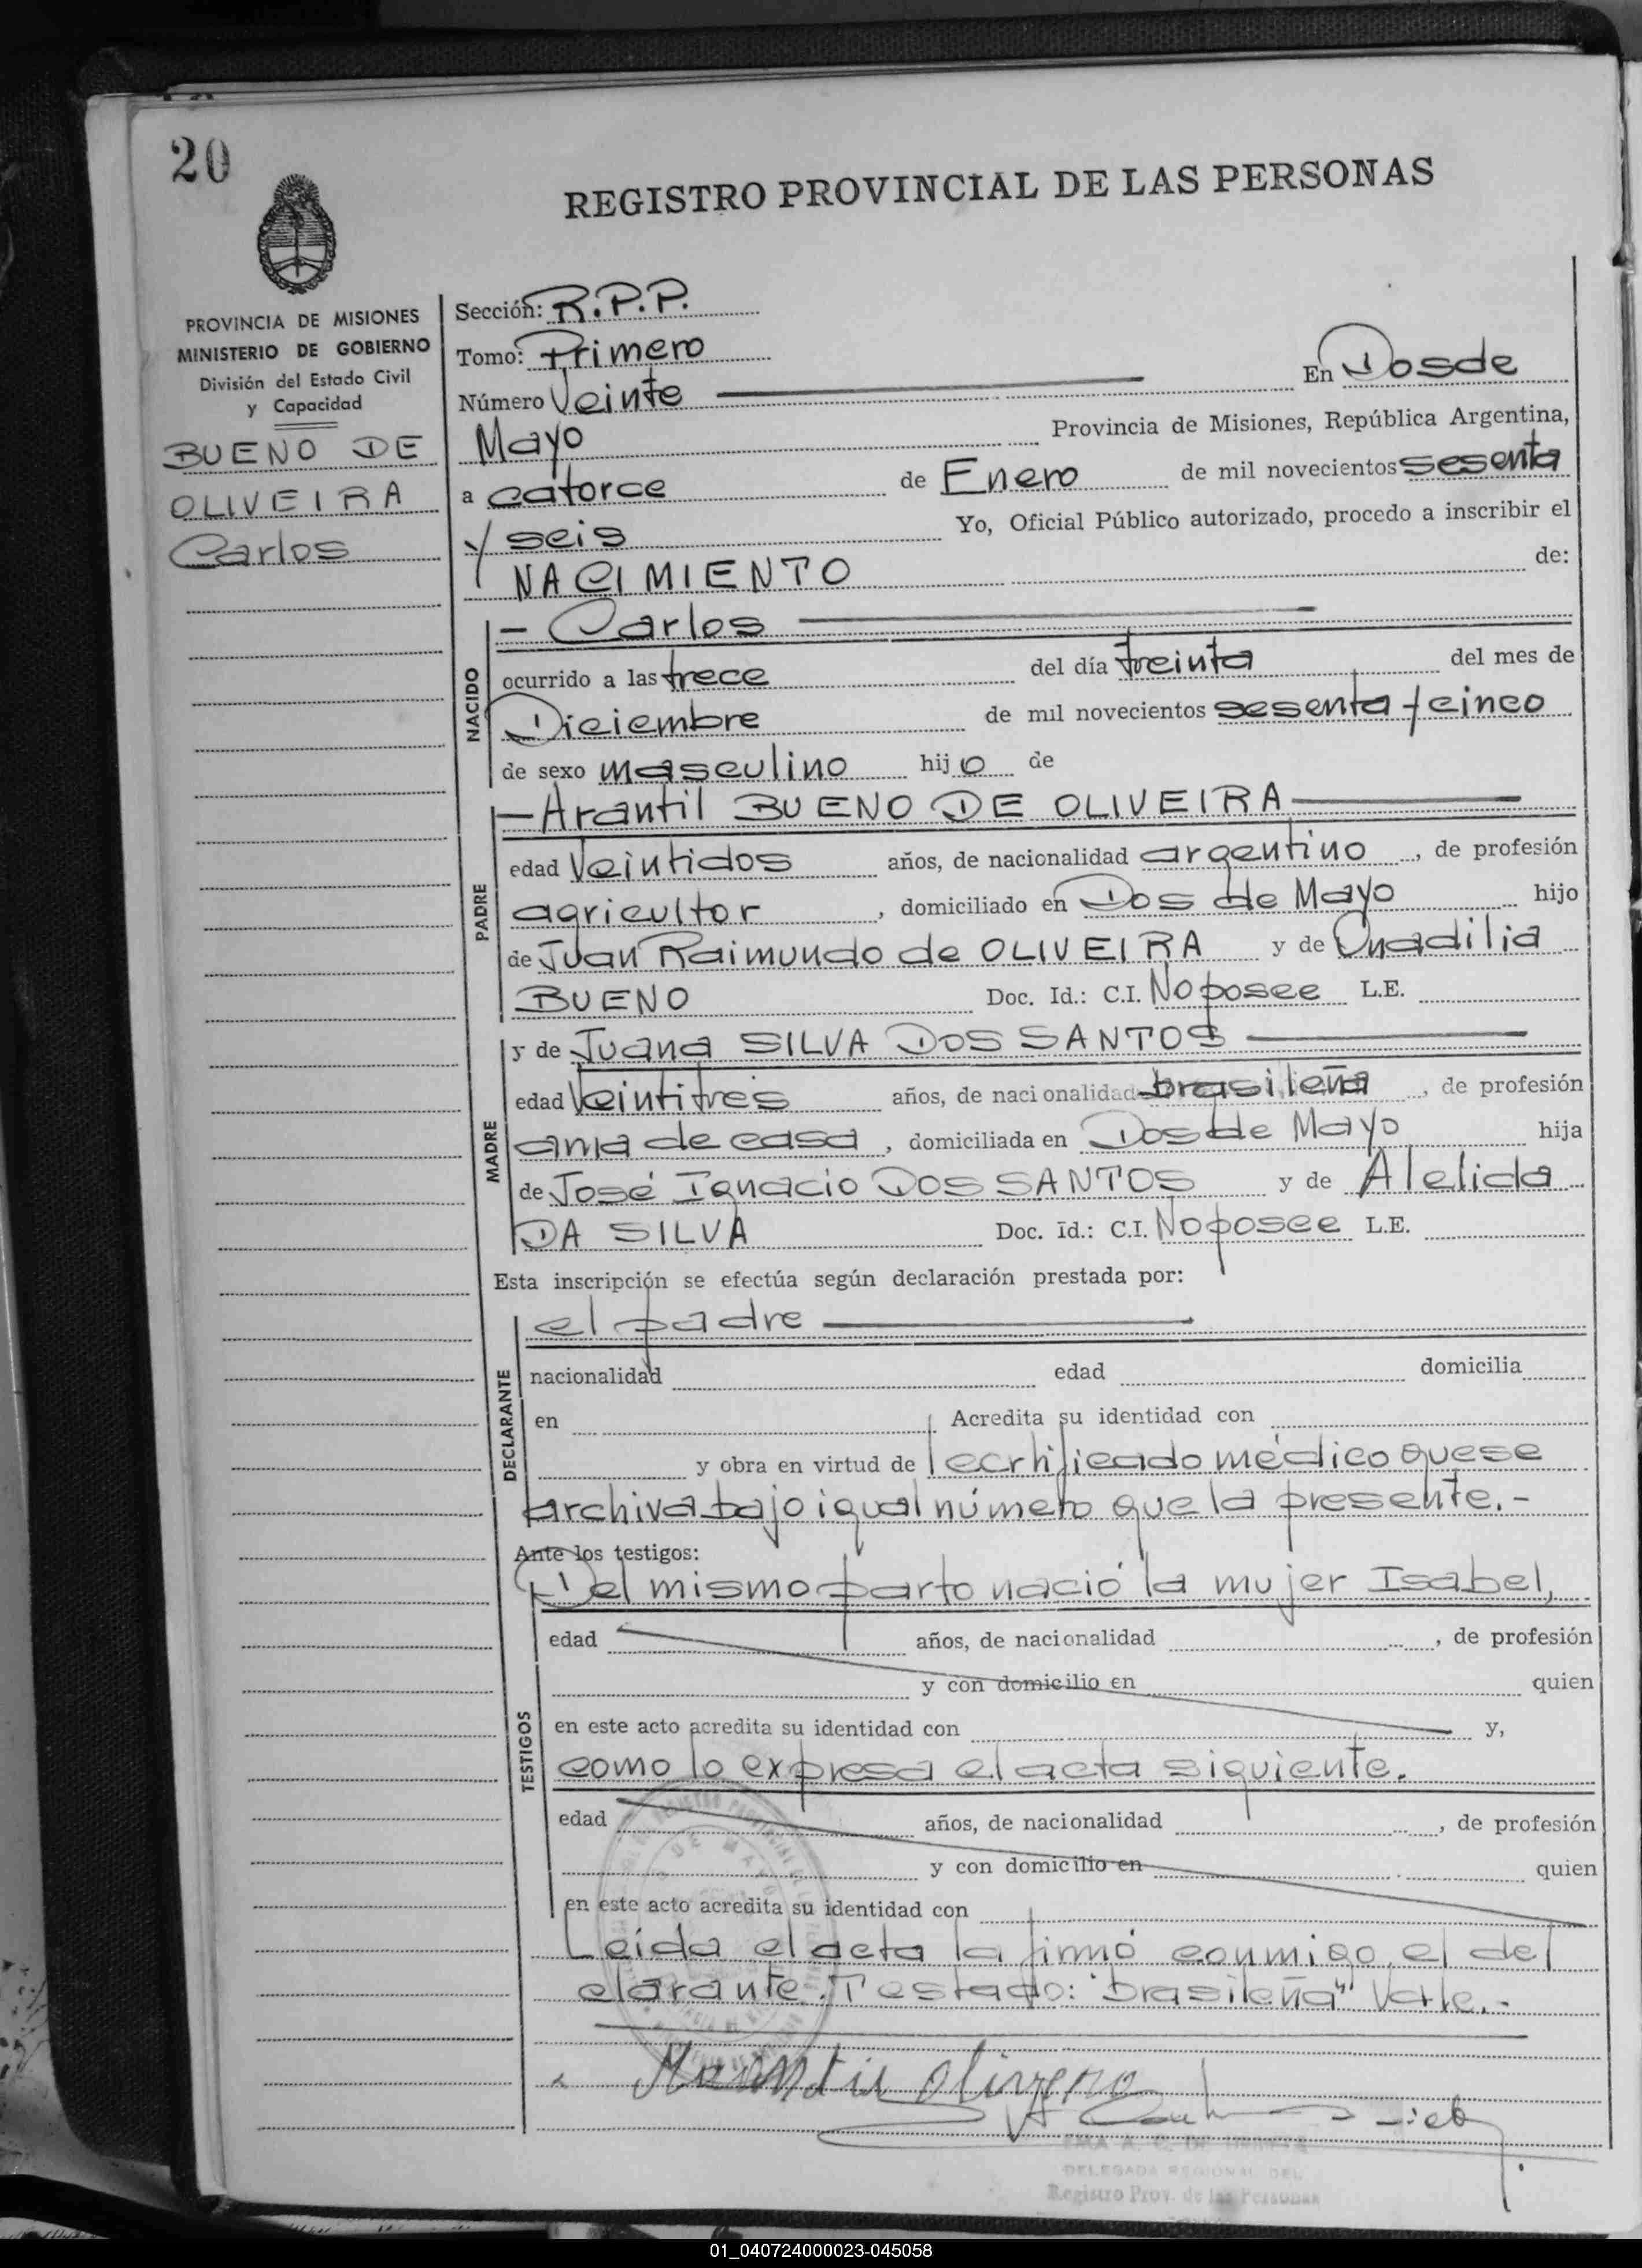 20
REGISTRO PROVINCIAL DE LAS PERSONAS
PROVINCIA DE MISIONES
MINISTERIO DE GOBIERNO
División del Estado Civil
y Capacidad
BUENO DE
OLIVEIRA
Carlos
Sección: R.P.P.
Tomo: Primero
Número Veinte En Dos de
Mayo Provincia de Misiones, República Argentina,
a catorce de Enero de mil novecientos sesenta
y seis Yo, Oficial Público autorizado, procedo a inscribir el
NACIMIENTO de:
NACIDO
- Carlos
ocurrido a las trece del día treinta del mes de
Diciembre de mil novecientos sesenta y cinco
de sexo masculino hijo de
PADRE
- Arantil BUENO DE OLIVEIRA
edad Veintidos años, de nacionalidad argentino, de profesión
agricultor, domiciliado en Dos de Mayo hijo
de Juan Raimundo de OLIVEIRA y de Onadilia
BUENO Doc. Id.: C.I. No posee L.E.
MADRE
y de Juana SILVA DOS SANTOS
edad Veintitres años, de nacionalidad brasileña, de profesión
ama de casa, domiciliada en Dos de Mayo hija
de José Ignacio DOS SANTOS y de Alelida
DA SILVA Doc. Id.: C.I. No posee L.E.
Esta inscripción se efectúa según declaración prestada por:
DECLARANTE
el padre
nacionalidad edad domicilia
en Acredita su identidad con
y obra en virtud de l certificado médico que se
archiva bajo igual número que la presente.-
Ante los testigos:
TESTIGOS
Del mismo parto nació la mujer Isabel,
edad años, de nacionalidad , de profesión
y con domicilio en quien
en este acto acredita su identidad con y,
como lo expresa el acta siguiente.
edad años, de nacionalidad , de profesión
y con domicilio en quien
en este acto acredita su identidad con
Leída el acta la firmó conmigo el del
clarante. Testado: "brasileña" Vale.-
DELEGADA REGIONAL DEL
Registro Prov. de las Personas
01_040724000023-045058